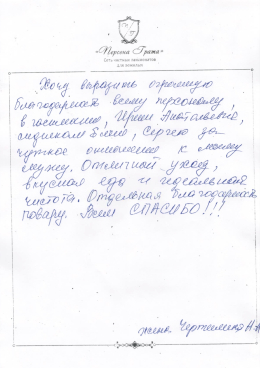 «Персона Грата»
Сеть частных пансионатов
для пожилых
Хочу выразить огромную
благодарность всему персоналу,
в частности, Ирине Анатольевне,
Сергею за
чуткое отношение к моему
мужу. Отличный уход,
вкусная еда и идеальная
чистота. Отдельная благодарность
повару. Всем СПАСИБО!!!
жена